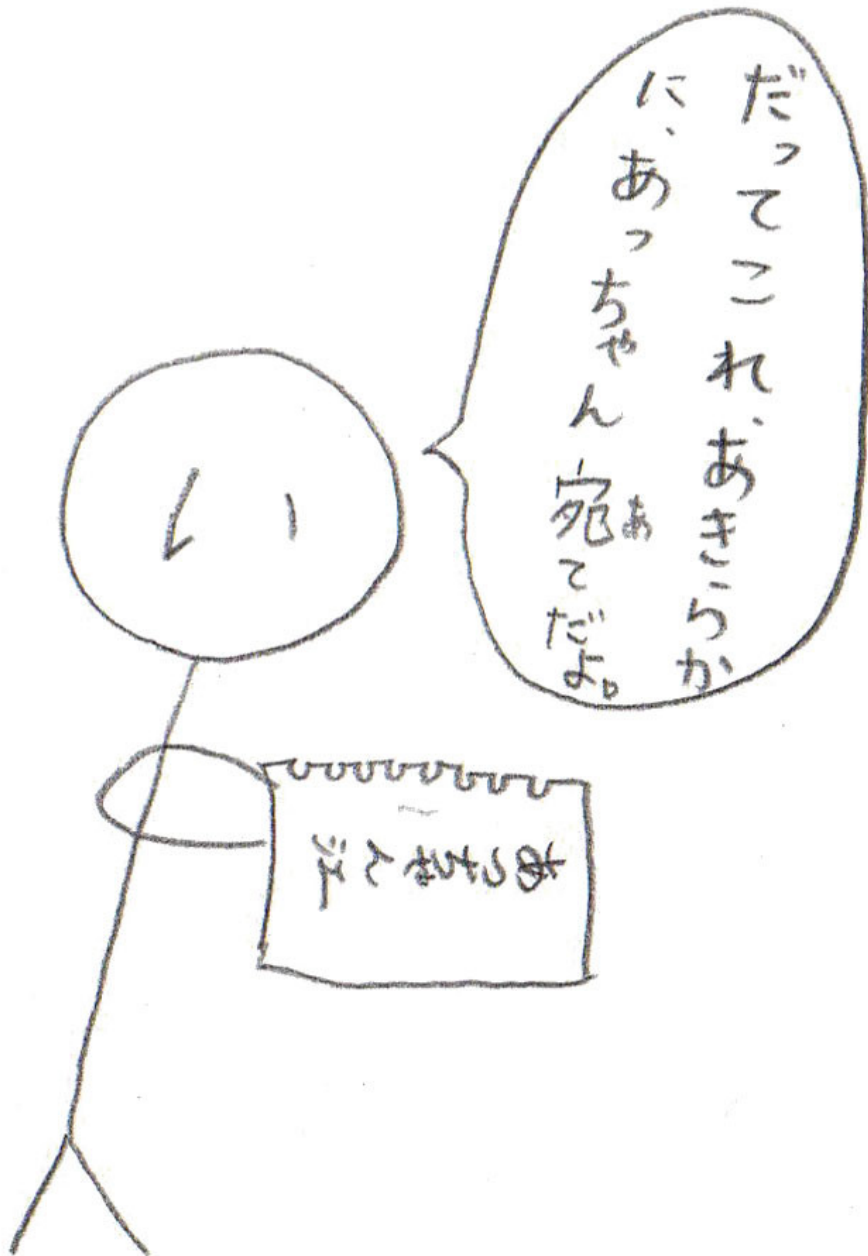 だってこれ、あきらか
に、あっちゃん宛てだよ。
あ
あっちゃん江